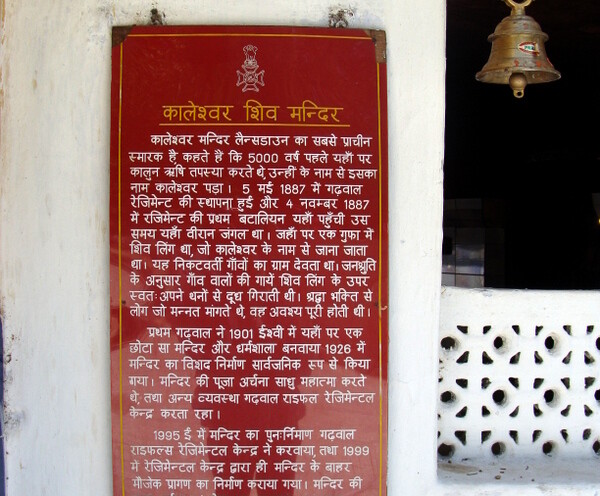 कालेश्वर शिव मन्दिर
कालेश्वर मन्दिर लैन्सडाउन का सबसे प्राचीन
स्मारक है कहते हैं कि 5000 वर्ष पहले यहाँ पर
कालुन ऋषि तपस्या करते थे, उन्हीं के नाम से इसका
नाम कालेश्वर पड़ा । 5 मई 1887 में गढ़वाल
रेजिमेन्ट की स्थापना हुई और 4 नवम्बर 1887
में रजिमेन्ट की प्रथम बटालियन यहाँ पहुँची उस
समय यहाँ वीरान जंगल था । जहाँ पर एक गुफा में
शिव लिंग था, जो कालेश्वर के नाम से जाना जाता
था । यह निकटवर्ती गाँवों का ग्राम देवता था । जनश्रुति
के अनुसार गाँव वालों की गायें शिव लिंग के उपर
स्वतः अपने थनों से दूध गिराती थी । श्रद्धा भक्ति से
लोग जो मन्नत मांगते थे, वह अवश्य पूरी होती थी ।
प्रथम गढ़वाल ने 1901 ईश्वी में यहाँ पर एक
छोटा सा मन्दिर और धर्मशाला बनवाया 1926 में
मन्दिर का विशद निर्माण सार्वजनिक रूप से किया
गया । मन्दिर की पूजा अर्चना साधु महात्मा करते
थे, तथा अन्य व्यवस्था गढ़वाल राइफल रेजिमेन्टल
केन्द्र करता रहा ।
1995 ई में मन्दिर का पुनःर्निमाण गढ़वाल
राइफल्स रेजिमेन्टल केन्द्र ने करवाया, तथा 1999
में रेजिमेन्टल केन्द्र द्वारा ही मन्दिर के बाहर
मौजेक प्रागण का निर्माण कराया गया । मन्दिर की